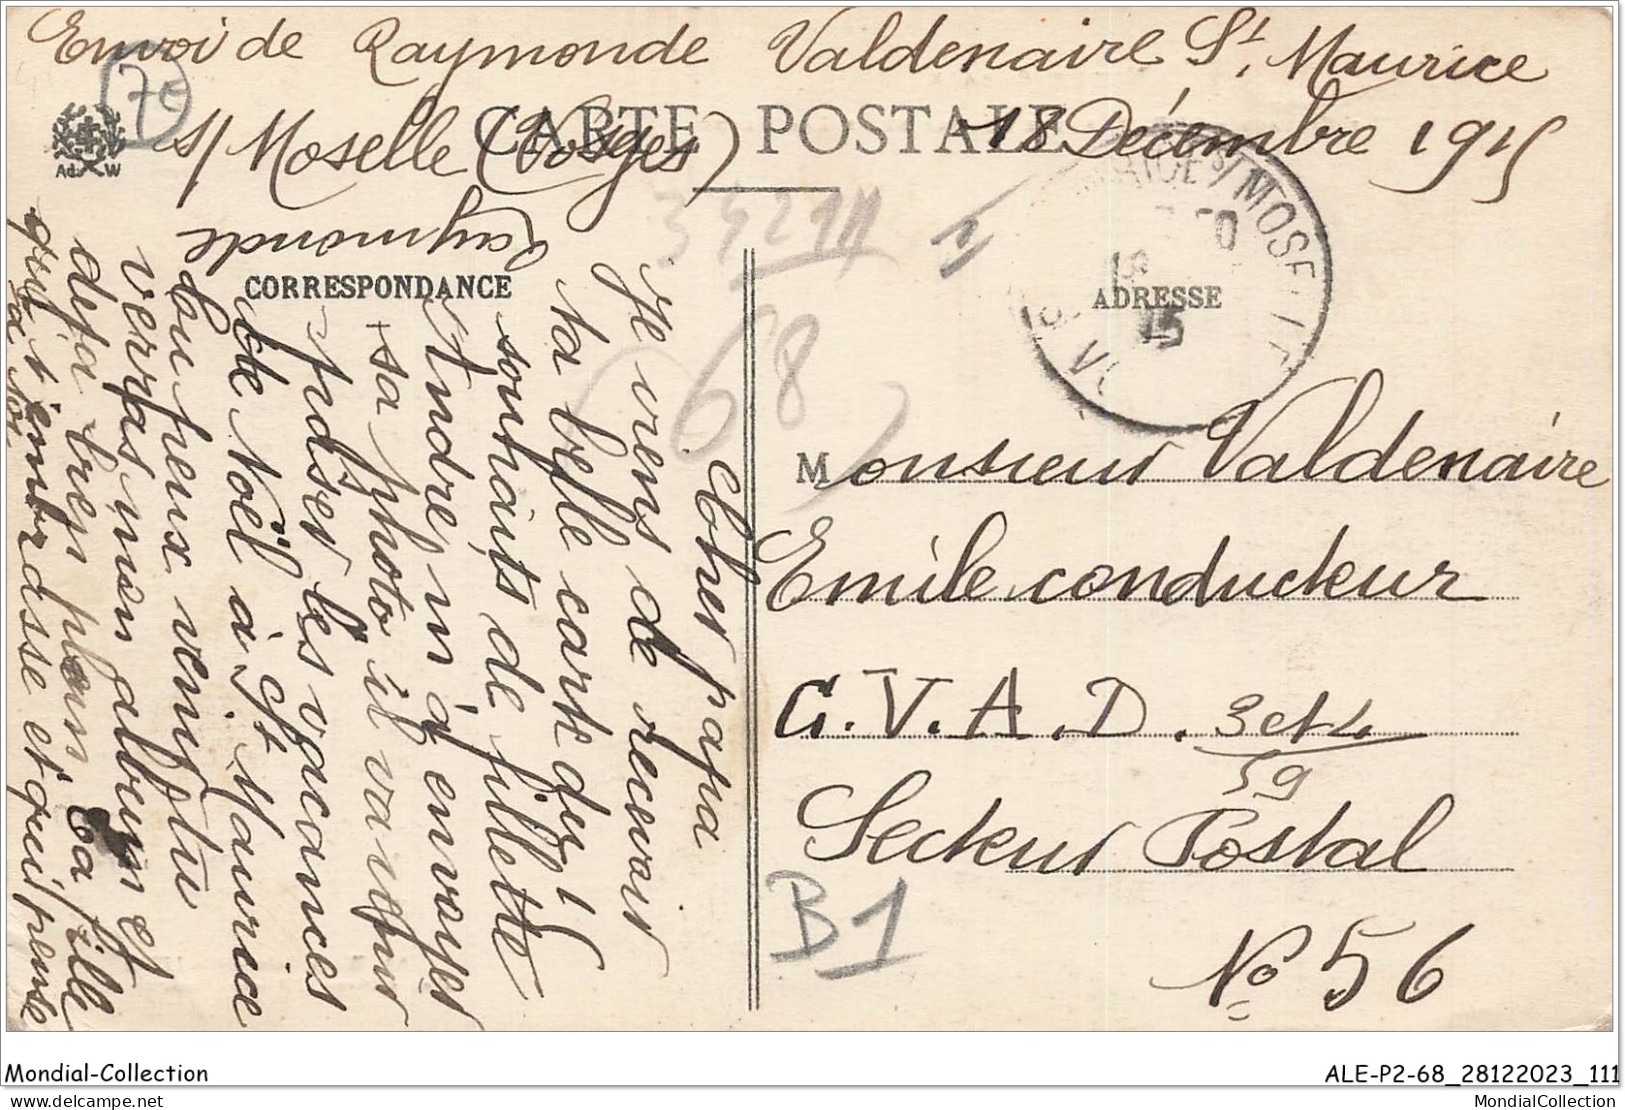 Envoi de Raymonde Valdenaire St Maurice
s/ Moselle (Vosges) 18 Décembre 1915
CARTE POSTALE
7€
Ad. W
3521A
68
1
MOSELLE
15
CORRESPONDANCE
ADRESSE
Cher papa
Je viens de recevoir
ta belle carte du 15
souhaits de fillette
Andre m'a envoyer
sa photo il va
les vacances
de Noël à St Maurice
heureux venir tu
verras mon album et
deja bien plein Ta fille
qui t'embrasse et qui pense
a toi
Raymonde
Monsieur Valdenaire
Emile conducteur
C.V.A.D. 3 et 4
59
Secteur Postal
No 56
B1
Mondial-Collection
ALE-P2-68_28122023_111
delcampe.net
MondialCollection